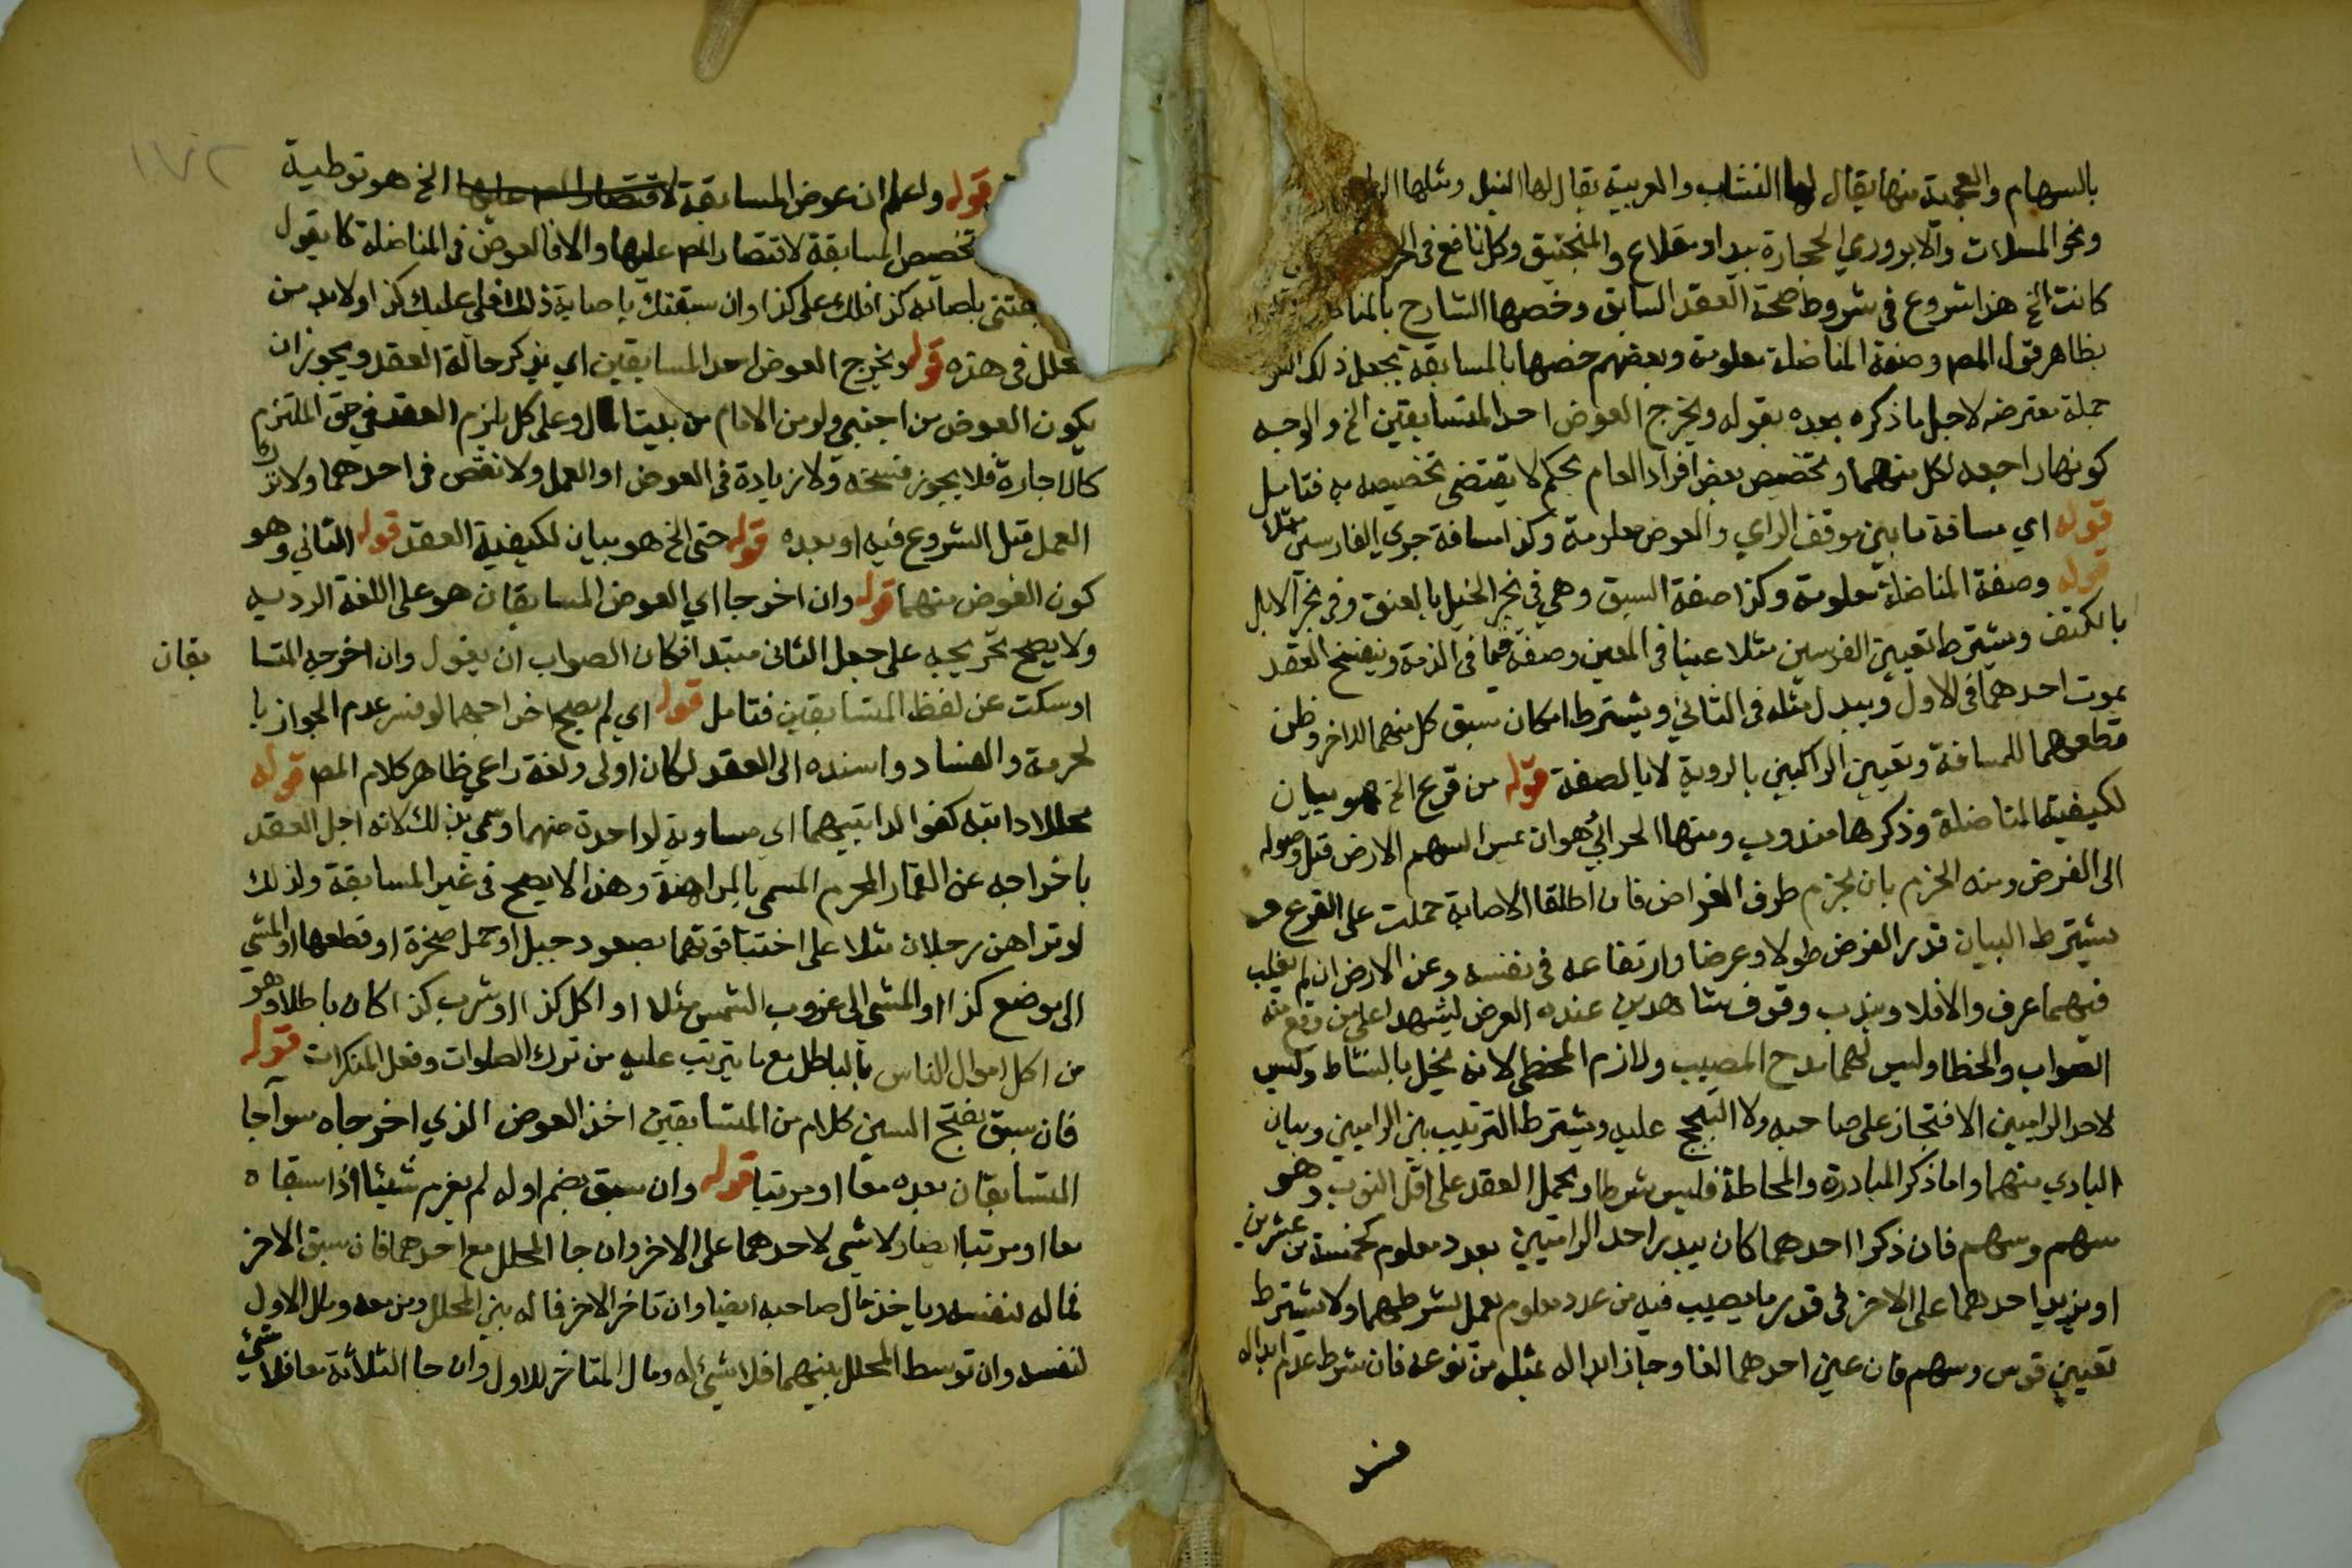 بالسهام والعجمية منها يقال لها النشاب والعربية يقال لها النبل ومثلها
ونحو المسلات والابر ورمي الحجارة بيد او مقلاع والمنجنيق وكل نافع في
كانت الخ هذا شروع في شروط صحة العقد السابق وخصها الشارح
بظاهر قول المصـ وصفة المناضلة معلومة وبعضهم خصها بالمسابقة بجعل ذلك
جملة معترضه لاجل ما ذكره بعده بقوله ويخرج العوض احد المتسابقين الخ والوجه
كونها راجعه لكل منهما وتخصيص بعض افراد العام بحكم لا يقتضي تخصيصه به فتامل
قوله اي مسافة ما بين موقف الرامي والعوض معلومة وكذا مسافة جري الفارسين مثلا
قوله وصفة المناضلة معلومة وكذا صفة السبق وهي في نحر الخيل بالعنق وفي نحر الابل
بالكتف ويشترط تعيين الفرسين مثلا عينا في المعين وصفة فيما في الذمة وينفسخ العقد
بموت احدهما في الاول ويبدل مثله في الثاني ويشترط امكان سبق كل منهما للاخر وظن
قطعهما للمسافة وتعيين الراكبين بالروية لا بالصفة قوله من قرع الخ هو بيان
لكيفية المناضلة وذكرها مندوب ومنها الحوابي هو ان يمس السهم الارض قبل وصوله
الى الغرض ومنه الخرم بان يخرم طرف الغراض فان اطلقا الاصابة حملت على القرع و
يشترط البيان قدر الغرض طولا وعرضا وارتفاعه في نفسه وعن الارض ان لم يغلب
فيهما عرف والا فلا ويندب وقوف شاهدين عنده العرض ليشهد اعلى من وقع منه
الصواب والخطا وليس لهما مدح المصيب ولا زم المخطي لانه يخل بالنشاط وليس
لاحد الراميين الافتجاز على صاحبه ولا التبجح عليه ويشترط الترتيب بين الراميين وبيان
البادي منهما واما ذكر المبادرة والمحاطة فليس شرطا ويحمل العقد على اقل النوب وهو
سهم وسهم فان ذكرا احدهما كان يبدر احد الراميين بعدد معلوم كخمسة من عشرين
او يزيد احدهما على الاخر في قدر ما يصيب فيه من عدد معلوم يعمل بشرطهما ولا يشترط
تعيين قوس وسهم فان عين احدهما لغا وجاز ابداله بمثله من نوعه فان شرط عدم ابداله
١٧٢
قوله واعلم ان عوض المسابقة لاقتصار المصـ عليها الخ هو توطية
تخصيص المسابقة لاقتصار المصـ عليها والا فالعوض في المناضلة كا يقول
باصابة كذا فلك على كذا وان سبقتك باصابة ذلك فلي عليك كذا ولا بد من
محلل في هذه قوله ويخرج العوض احد المسابقين اي يذكر حالة العقد ويجوز ان
يكون العوض من اجنبي ولو من الامام من بيت المال وعلى كل يلزم العقد في حق الملتزم
كالاجارة فلا يجوز فسخه ولا زيادة في العوض او العمل ولا نقص في احدهما ولا ترك
العمل قبل الشروع فيه او بعده قوله حتى الخ هو بيان لكيفية العقد قوله الثاني وهو
كون العوض منهما قوله وان اخرجا اي العوض المسابقان هو على اللغة الردية
ولا يصح تخريجه على جعل الثاني مبتدا فكان الصواب ان يقول وان اخرجه المتسا بقان
او سكت عن لفظ المتسابقين فتامل قوله اي لم يصح اخراجهما لو فسر عدم الجواز با
لحرمة والفساد واسنده الى العقد لكان اولى ولعله راعى ظاهر كلام المصـ قوله
محللا دابته كفوا لدابتيهما اي مساوية لواحدة منهما وسمي بذلك لانه احل العقد
باخراجه عن القمار المحرم المسمى بالمراهنة وهذا لا يصح في غير المسابقة ولذلك
لو تراهن رجلان مثلا على اختبا قوتهما بصعود جبل او حمل صخرة او قطعها او المشي
الى موضع كذا او المشي الى غروب الشمس مثلا او اكل كذا او شرب كذا كان باطلا وهو
من اكل اموال الناس بالباطل مع ما يترتب عليه من ترك الصلوات وفعل المنكرات قوله
فان سبق بفتح السين كلام من المتسابقين اخذ العوض الذي اخرجاه سوآ جا
المتسابقان بعده معا او مرتبا قوله وان سبق بضم اوله لم يغرم شيئا اذا سبقاه
معا او مرتبا ايضا ولا شي لاحدهما على الاخر وان جا المحلل مع احدهما فان سبق الاخر
فماله لنفسه وياخذ مال صاحبه ايضا وان تاخر الاخر فماله بين المحلل ومن معه ومال الاول
لنفسه وان توسط المحلل بينهما فلا شي له ومال المتاخر للاول وان جا الثلاثة معا فلا شي